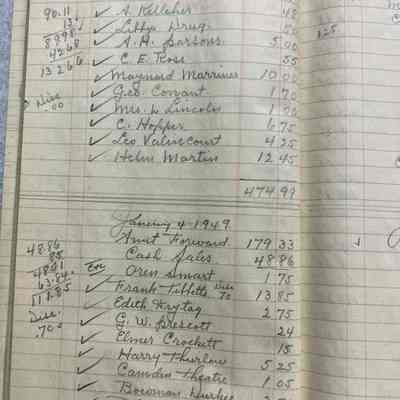 90.11
.13
8998
4268
13266
Disc
.00
✓ A. Kelleher 48
✓ Libby Drug 50
✓ A. H. Parsons 5 00
✓ C. E. Ross 55
✓ Maynard Marriner 10 00
✓ Geo. Conant 1 70
✓ Mrs. L Lincoln 1 00
✓ C. Hopper 6 75
✓ Leo Valincourt 4 25
✓ Helen Martin 12 45
474 99
125
January 4 - 1949
Amt Forward 179 33
Cash Sales 48.86
Oren Smart 1 75
✓ Frank Tibbetts Disc 70 13 85
✓ Edith Krytag 2 75
✓ G. W. Prescott 24
✓ Elmer Crockett 15
✓ Harry Thurlow 5 25
✓ Camden Theatre 1 05
✓ Bowman
48.86
85
48.01
63.84
111.85
Disc.
.70